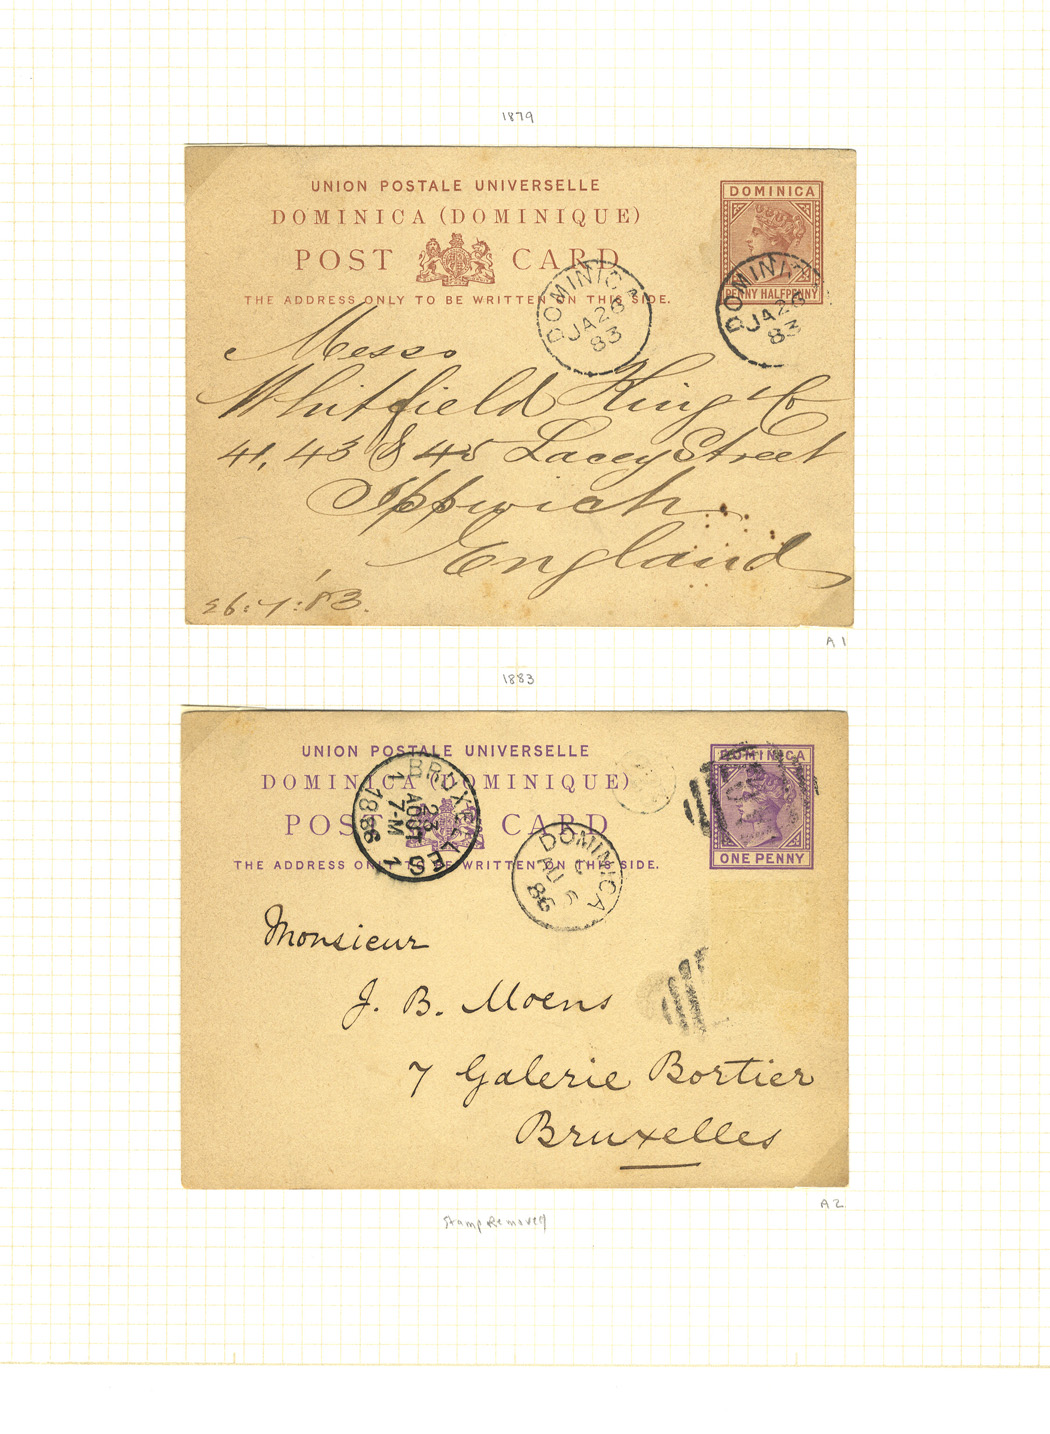 1879
UNION POSTALE UNIVERSELLE
DOMINICA (DOMINIQUE)
POST CARD
THE ADDRESS ONLY TO BE WRITTEN ON THIS SIDE.
DOMINICA
PENNY HALFPENNY
DOMINICA
JA 26
83
DOMINICA
JA 26
83
Messrs
Whitfield King & Co
41, 43 & 45 Lacey Street
Ippwich
England
26:1:83.
A 1
1883
UNION POSTALE UNIVERSELLE
DOMINICA (DOMINIQUE)
POST CARD
THE ADDRESS ONLY TO BE WRITTEN ON THIS SIDE.
DOMINICA
ONE PENNY
BRUXELLES 1
23
AOUT
7-M
1886
DOMINICA
AU 6
86
Monsieur
J. B. Moens
7 Galerie Bortier
Bruxelles
A 2
Stamp Removed